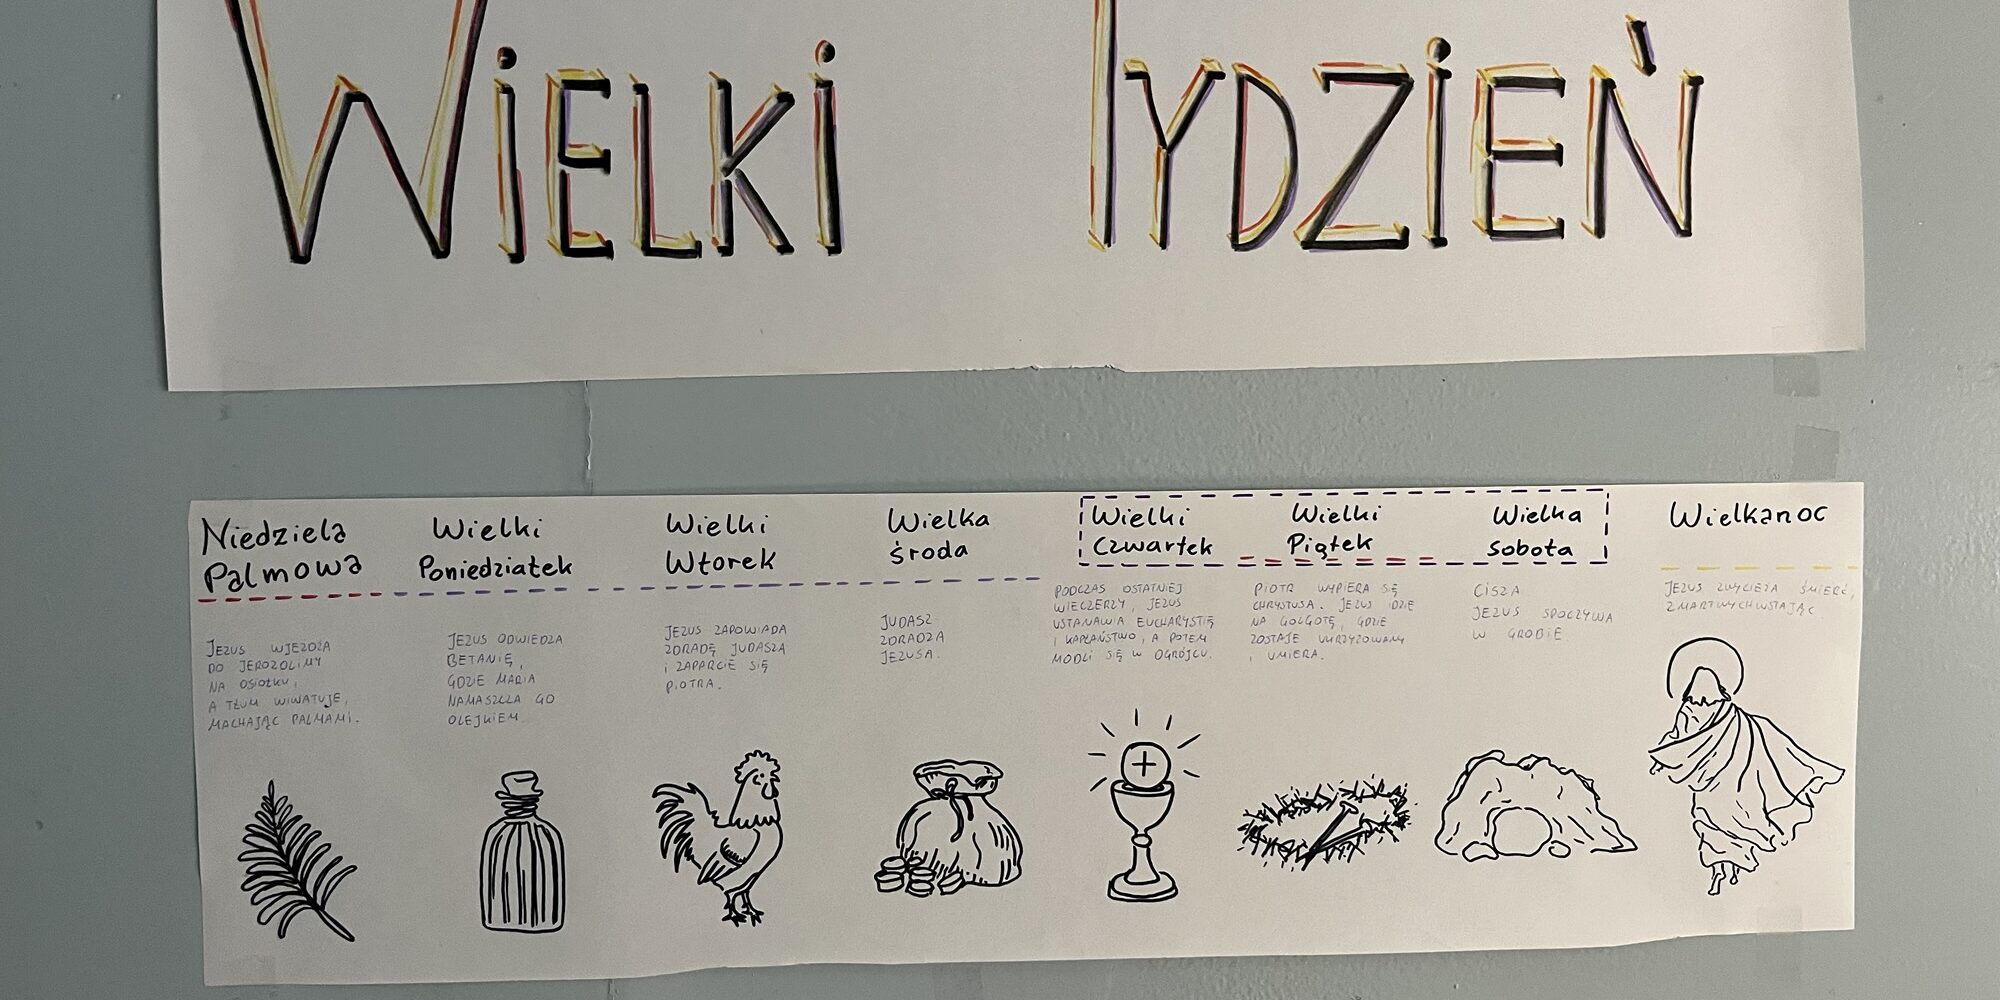 WIELKI TYDZIEŃ
Niedziela
Palmowa
JEZUS WJEŻDŻA
DO JEROZOLIMY
NA OSIOŁKU,
A TŁUM WIWATUJE,
MACHAJĄC PALMAMI.
Wielki
Poniedziałek
JEZUS ODWIEDZA
BETANIĘ,
GDZIE MARIA
NAMASZCZA GO
OLEJKIEM.
Wielki
Wtorek
JEZUS ZAPOWIADA
ZDRADĘ JUDASZA
I ZAPARCIE SIĘ
PIOTRA.
Wielka
środa
JUDASZ
ZDRADZA
JEZUSA.
Wielki
Czwartek
PODCZAS OSTATNIEJ
WIECZERZY, JEZUS
USTANAWIA EUCHARYSTIĘ
I KAPŁAŃSTWO, A POTEM
MODLI SIĘ W OGRÓJCU.
Wielki
Piątek
PIOTR WYPIERA SIĘ
CHRYSTUSA. JEZUS IDZIE
NA GOLGOTĘ, GDZIE
ZOSTAJE UKRZYŻOWANY
I UMIERA.
Wielka
sobota
CISZA
JEZUS SPOCZYWA
W GROBIE
Wielkanoc
JEZUS ZWYCIĘŻA ŚMIERĆ,
ZMARTWYCHWSTAJĄC